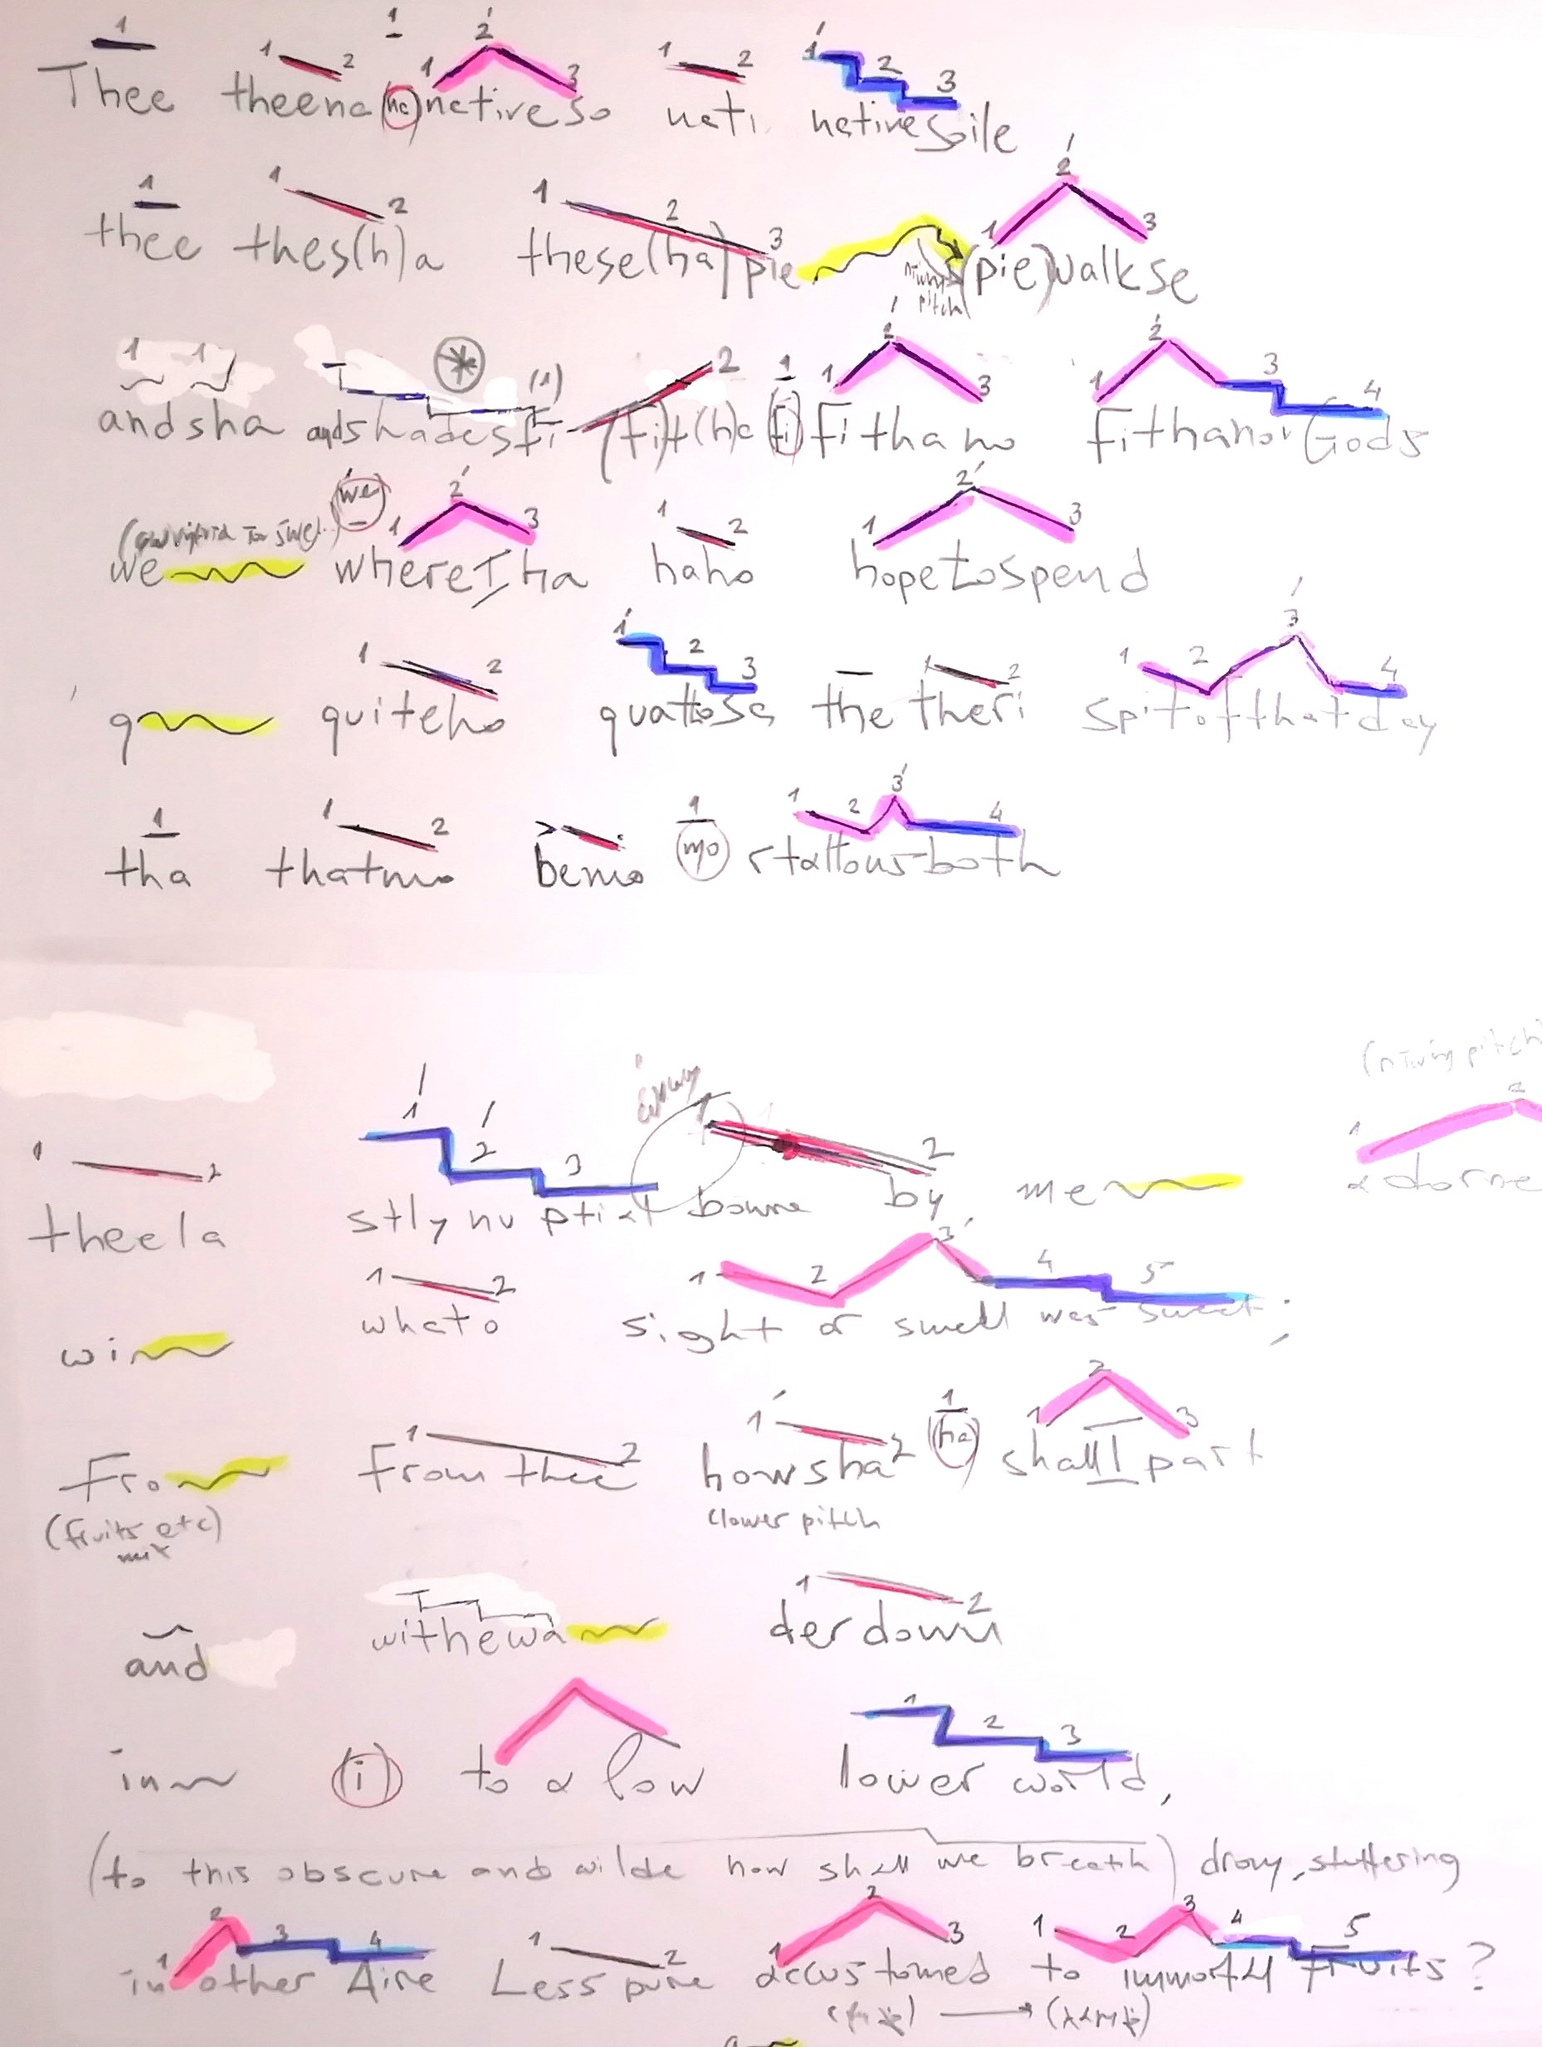 1 1 2 1 1 2 3 1 2 1 2 3
Thee theena (na) nativeso nati nativesoile
1 1 2 1 2 3 1 2 3
thee thes(h)a these(ha) pie (pie)walkse
pitch
1 1 (1) 2 1 1 2 3 1 2 3 4
andsha andshadesfi (fi)t(h)a (fi) fithano fithanorGods
(we) 1 2 3 1 2 1 2 3
we whereIha haho hopetospend
1 2 1 2 3 1 2 1 2 3 4
q quiteho quattosa the theri spitofthatday
1 1 2 1 1 2 3 4
tha thatmo bemo (mo) rtaltousboth
1 2 1 2 3 2 1 2
theela stly nu ptial bowre by me adorne
1 2 1 2 3 4 5
wi whato sight or smell was sweet;
1 2 1 2 1 1 2 3
Fro from thee howsha (ha) shall I part
(fruits etc) mix (lower pitch
1 2
and withewa derdown
1 2 3
in (i) to a low lower world,
(to this obscure and wilde how shall we breath) drony, stuttering
1 2 3 4 1 2 1 2 3 1 2 3 4 5
in other Aire Less pure accustomed to immortal Fruits?